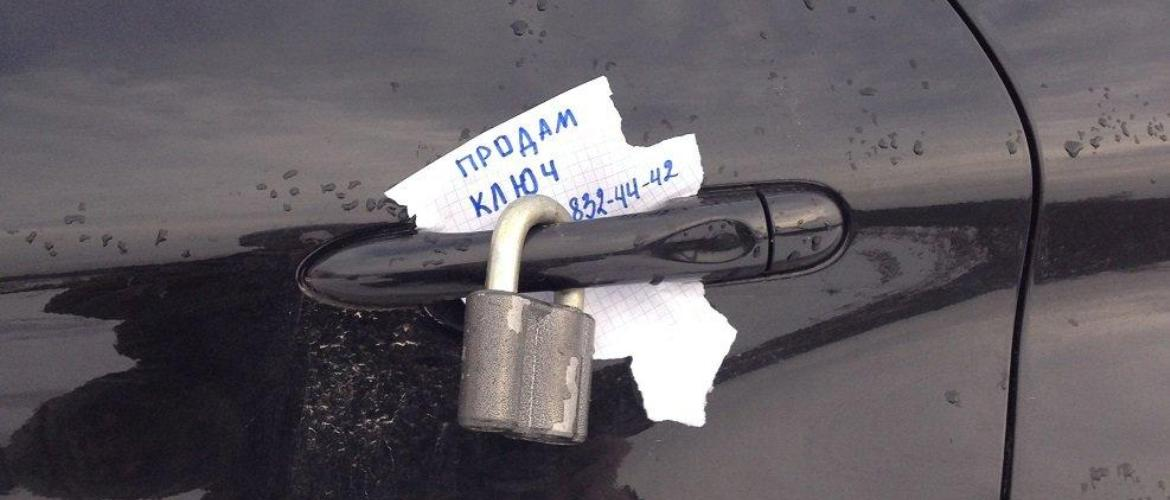 ПРОДАМ
КЛЮЧ
832-44-42